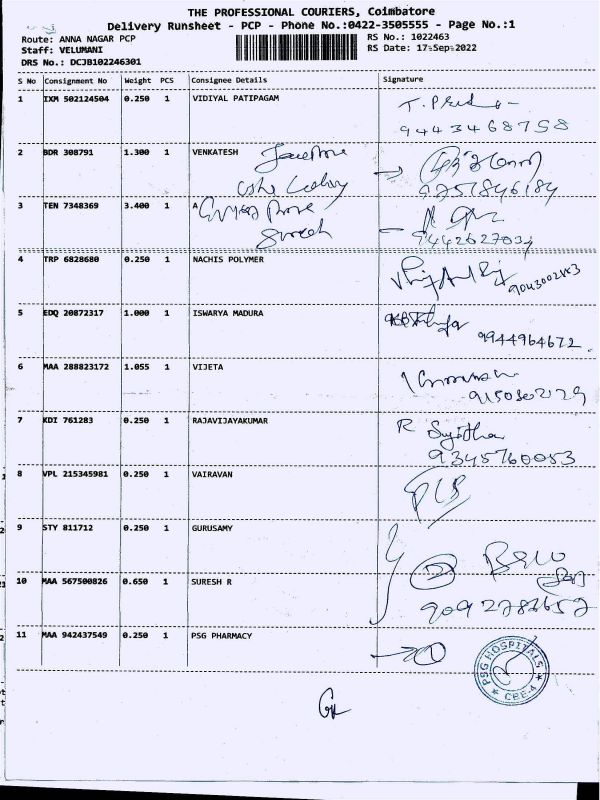 THE PROFESSIONAL COURIERS, Coimbatore
Delivery Runsheet - PCP - Phone No.:0422-3505555 - Page No.:1
Route: ANNA NAGAR PCP
RS No.: 1022463
Staff: VELUMANI
RS Date: 17-Sep-2022
DRS No.: DCJB102246301
S No Consignment No Weight PCS Consignee Details Signature
1 IXM 502124504 0.250 1 VIDIYAL PATIPAGAM
9443468758
2 BDR 308791 1.300 1 VENKATESH
9751846184
3 TEN 7348369 3.400 1 A
Suresh
9442627034
4 TRP 6828680 0.250 1 NACHIS POLYMER
5 EDQ 20872317 1.000 1 ISWARYA MADURA
9944964672.
6 MAA 288823172 1.055 1 VIJETA
7 KDI 761283 0.250 1 RAJAVIJAYAKUMAR
R Sujitha
9345760053
8 VPL 215345981 0.250 1 VAIRAVAN
9 STY 811712 0.250 1 GURUSAMY
10 MAA 567500826 0.650 1 SURESH R
11 MAA 942437549 0.250 1 PSG PHARMACY
PSG HOSPITALS
CBE-4